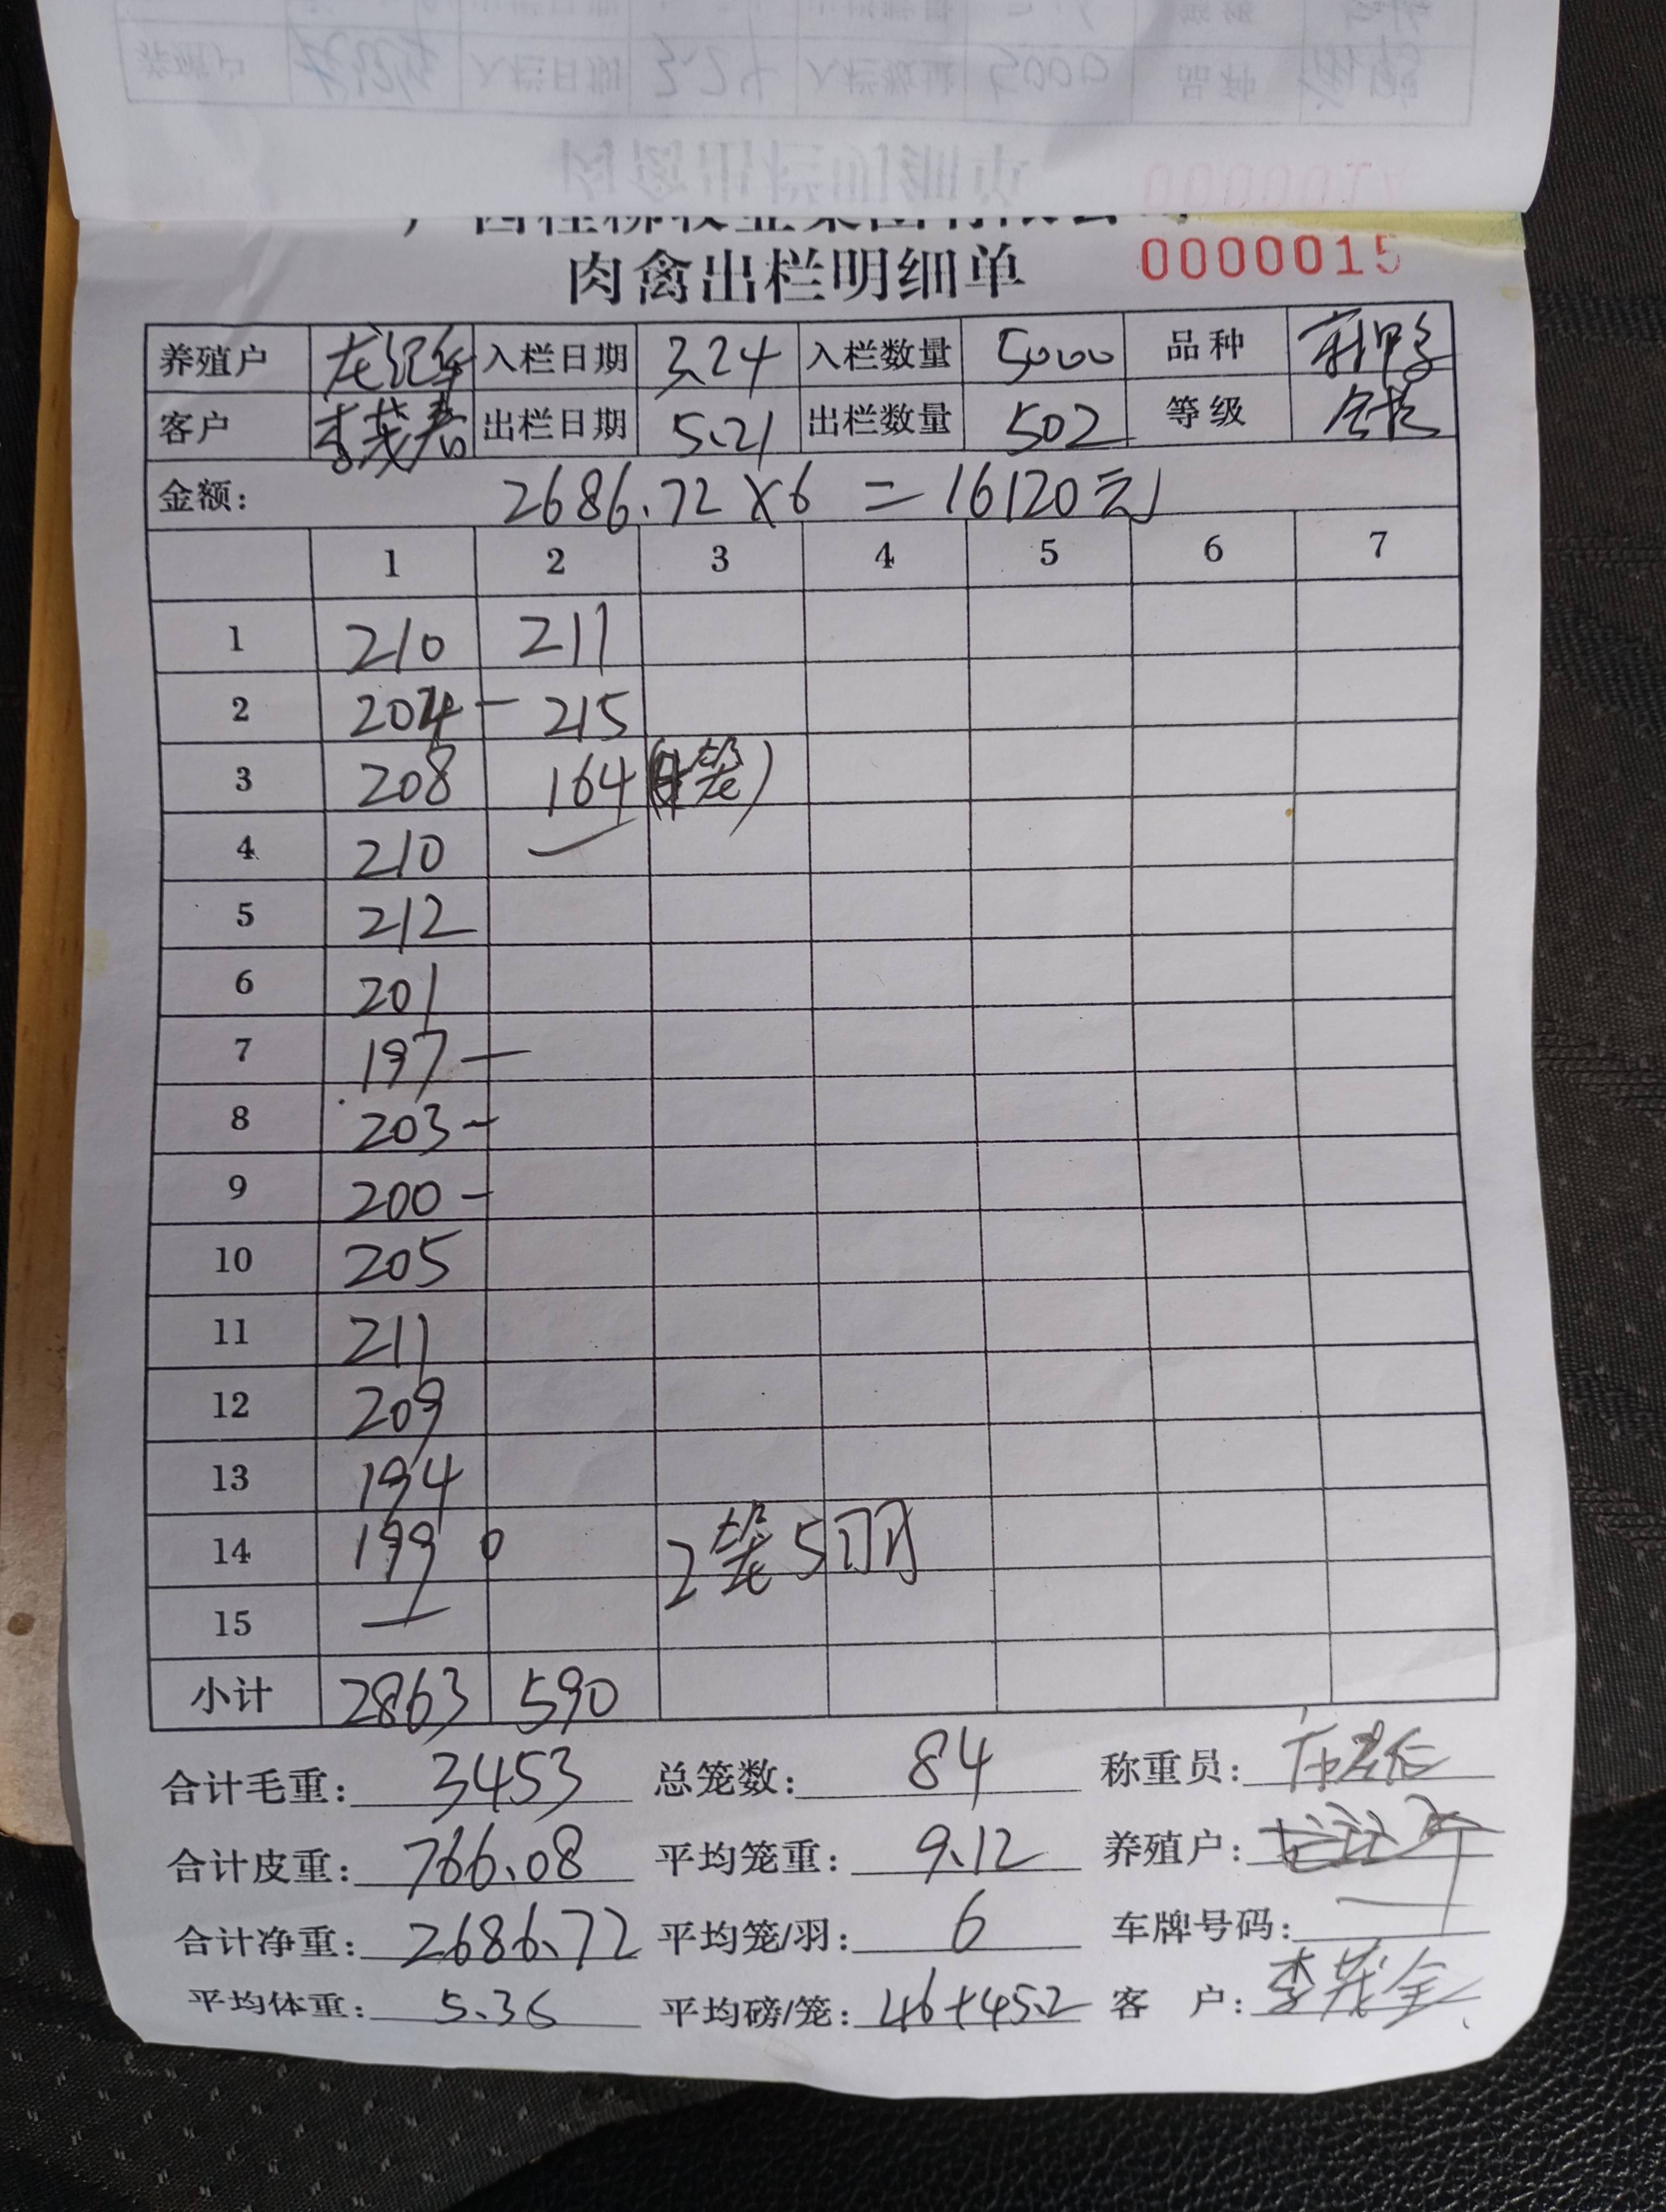 肉禽出栏明细单 0000015
养殖户 龙纪年 入栏日期 3.24 入栏数量 5000 品种
客户 李茂春 出栏日期 5.21 出栏数量 502 等级
金额: 2686.72×6=16120元
1 2 3 4 5 6 7
1 210 211
2 204- 215
3 208 164 笼)
4 210
5 212
6 201
7 197-
8 203-
9 200-
10 205
11 211
12 209
13 194
14 199 0 2笼5羽
15
小计 2863 590
合计毛重: 3453 总笼数: 84 称重员:
合计皮重: 766.08 平均笼重: 9.12 养殖户:
合计净重: 2686.72 平均笼/羽: 6 车牌号码:
平均体重: 5.35 平均磅/笼: 46+45.2 客 户: 李茂全